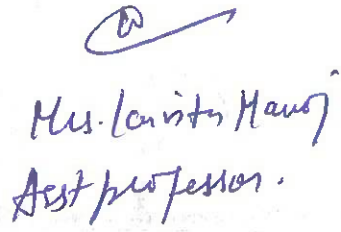 Mrs. Kavitha Manoj
Asst professor.